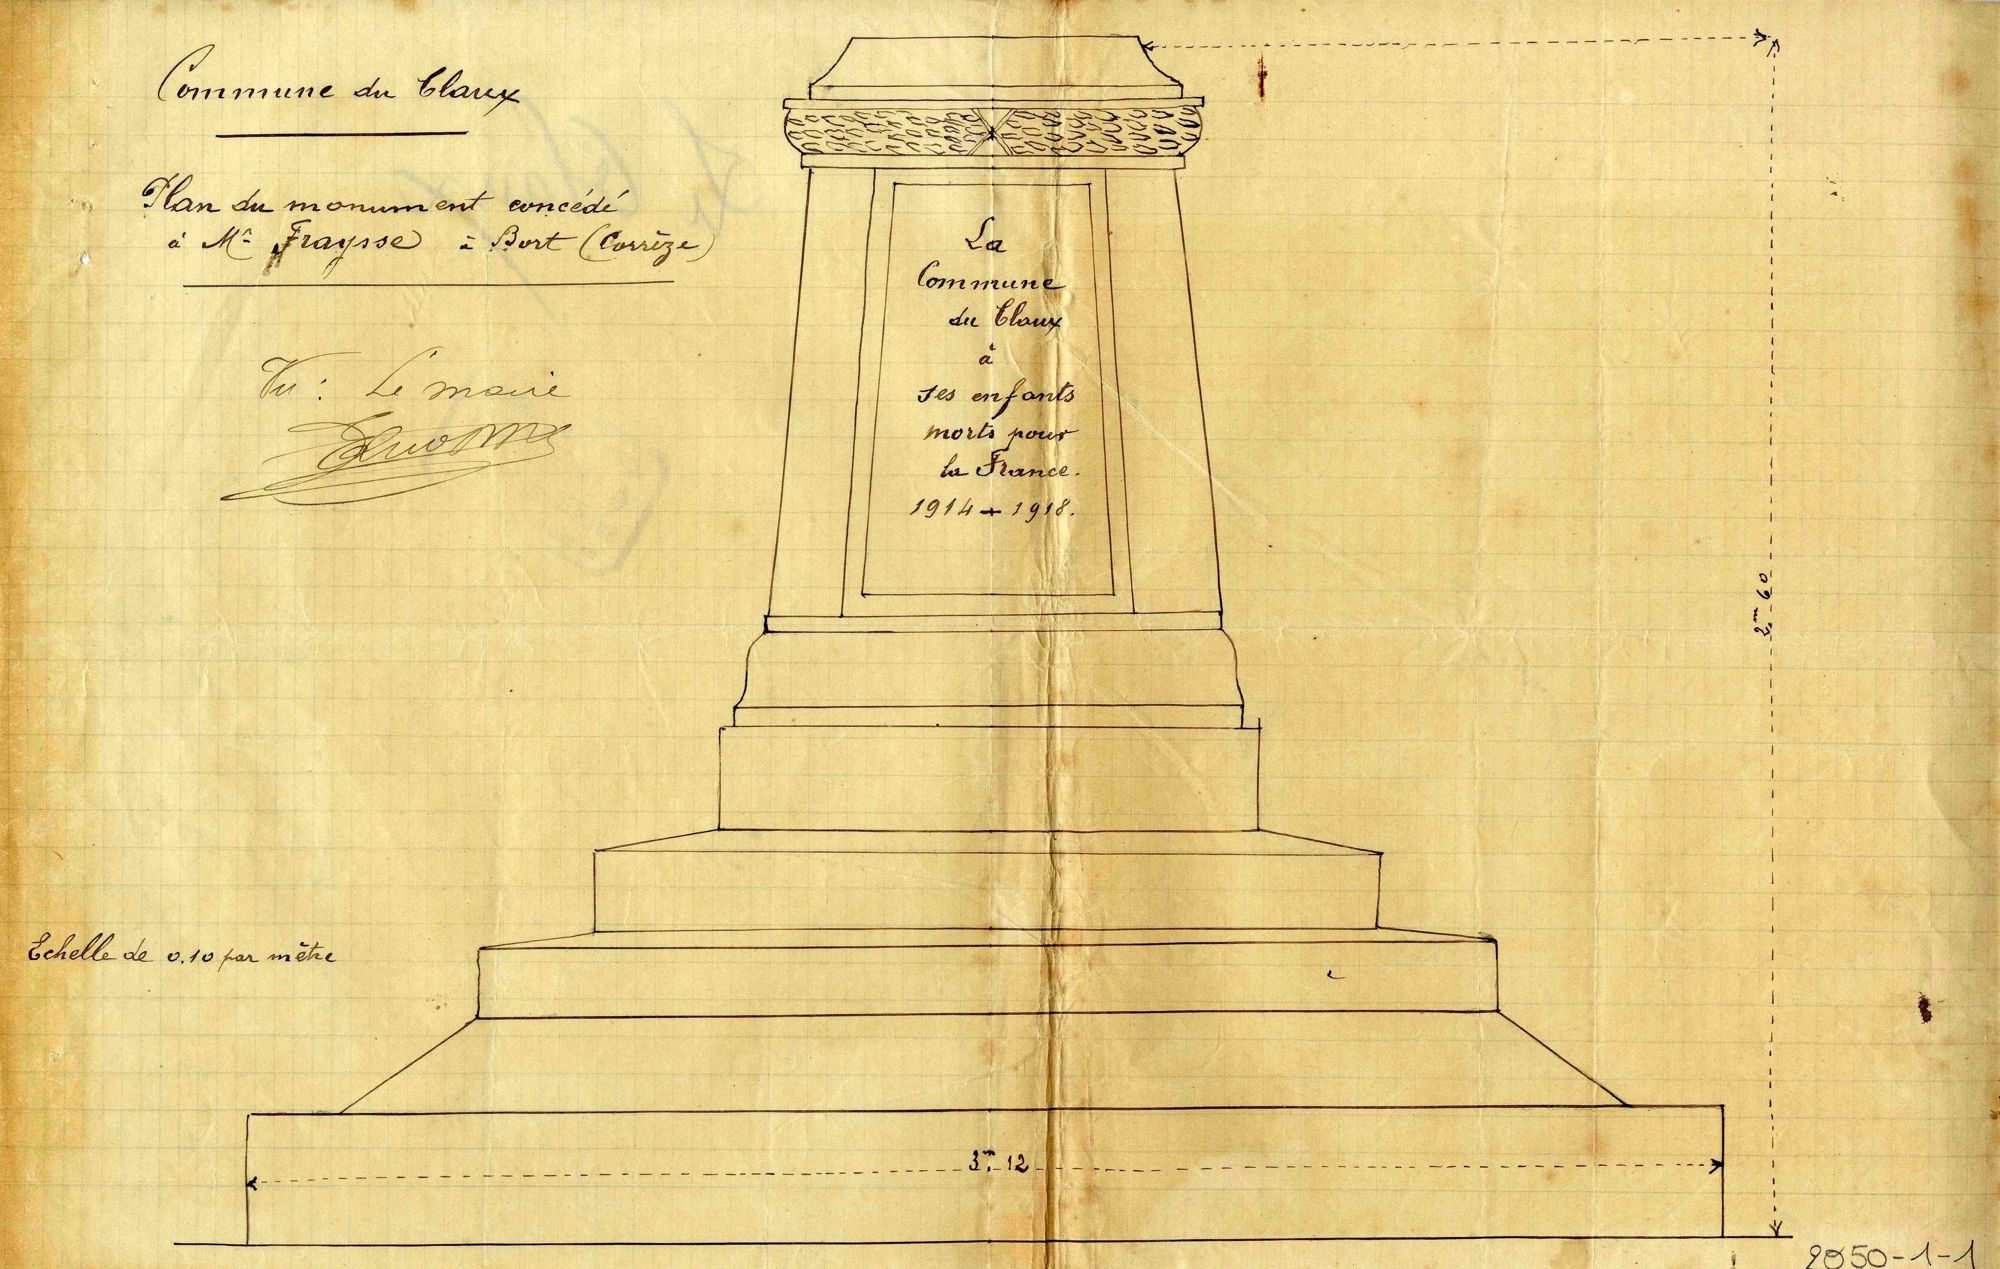 Commune du Claux
Plan du monument concédé
à Mr Fraysse à Bort (Corrèze)
Vu : Le maire
La
Commune
du Claux
à
ses enfants
morts pour
la France.
1914 - 1918.
2m 60
Echelle de 0.10 par mètre
3m. 12
2050-1-1